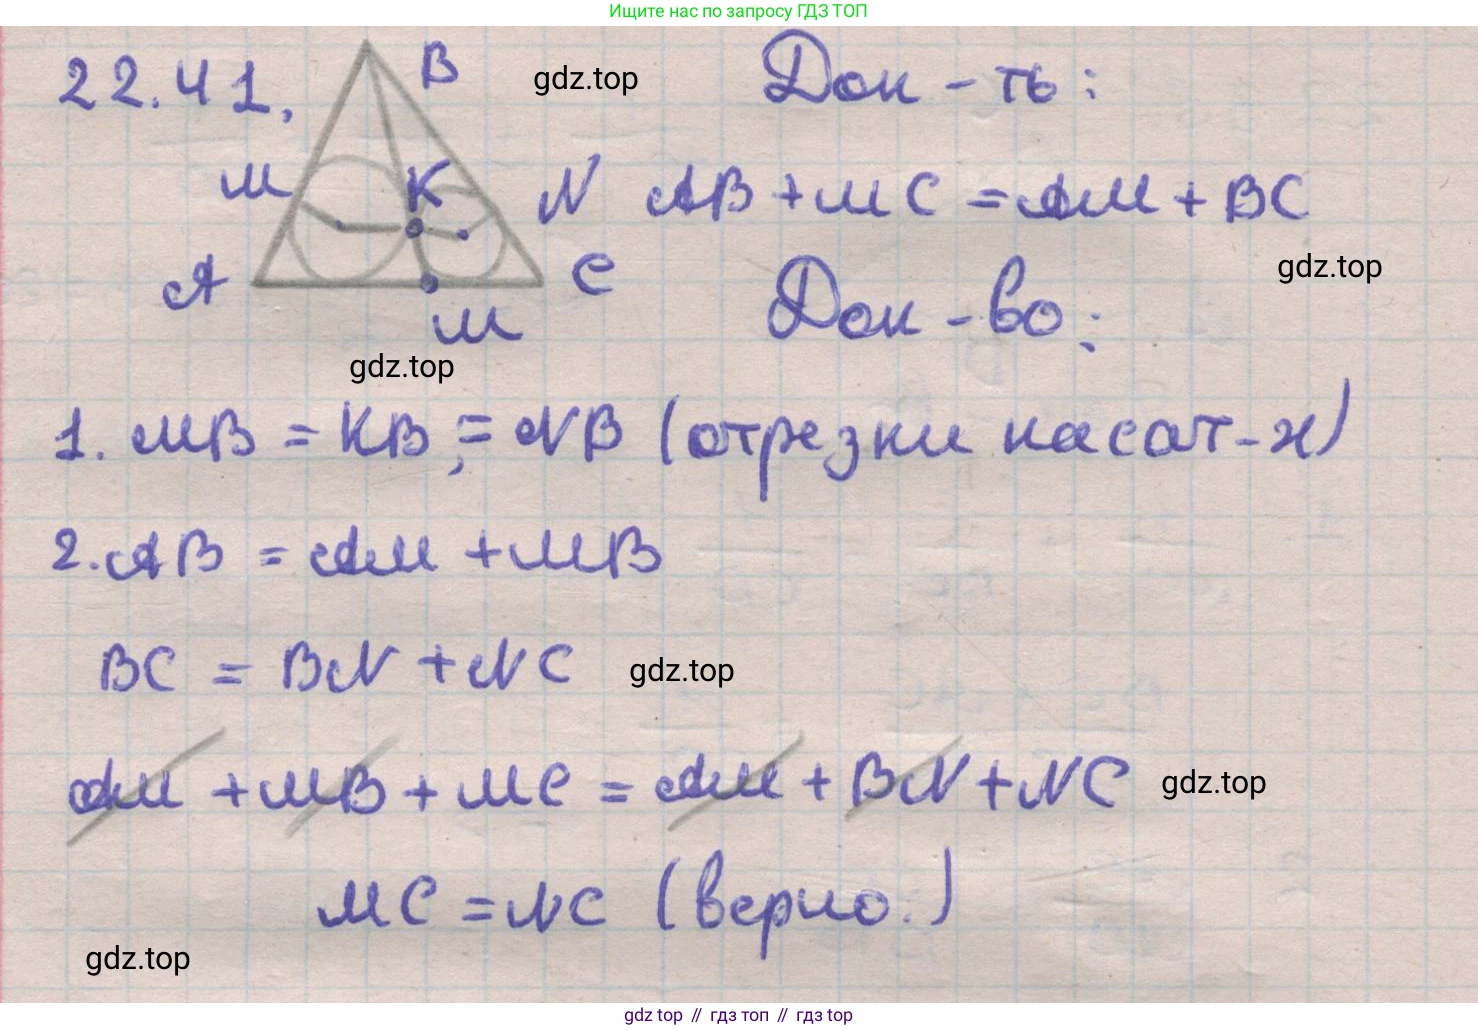 Ищите нас по запросу ГДЗ ТОП
22.41.
B
gdz.top
Док-ть:
M
K
N
AB + MC = AM + BC
A
C
gdz.top
M
Док-во:
gdz.top
1. MB = KB; = NB (отрезки касат-х)
2. AB = AM + MB
BC = BN + NC
gdz.top
AM + MB + MC = AM + BN + NC
gdz.top
MC = NC (верно.)
gdz.top
gdz top // гдз топ // гдз top